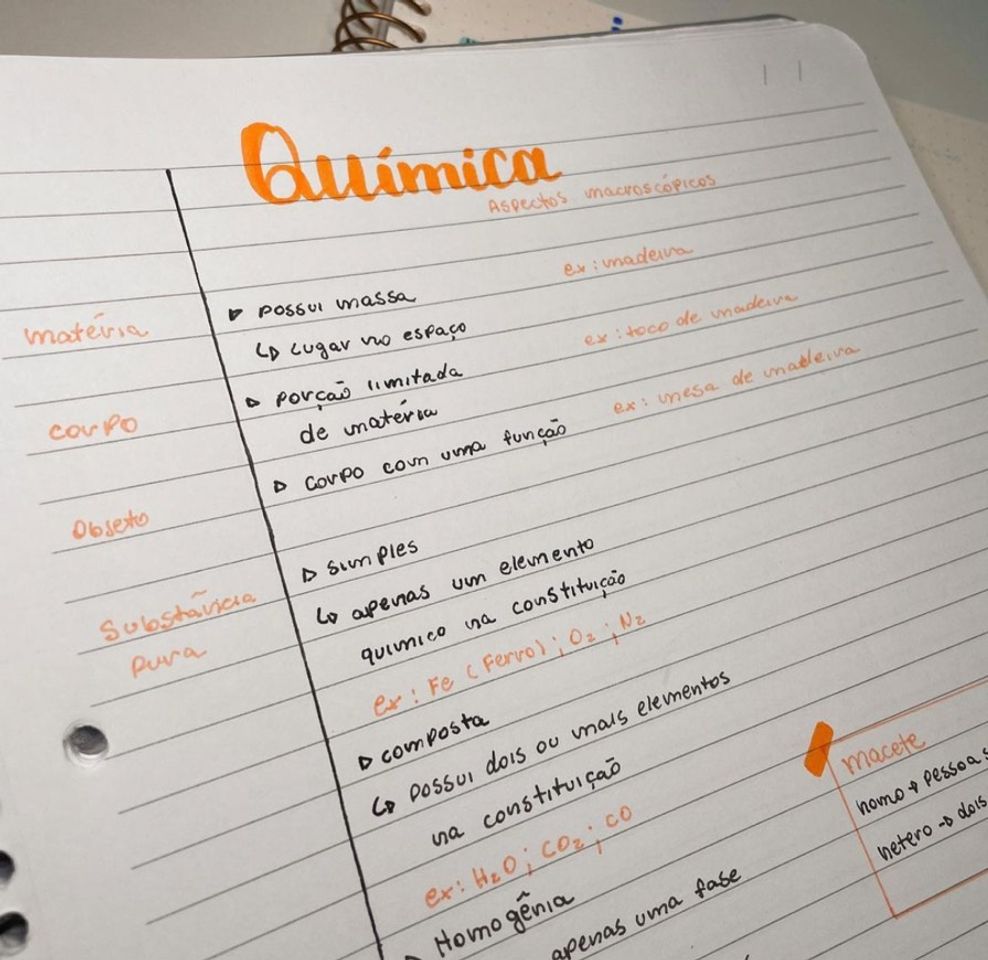 Química
Aspectos macroscópicos
matéria
▷ possui massa
ex: madeira
↳ lugar no espaço
corpo
▷ porção limitada
de matéria
ex: toco de madeira
Objeto
▷ corpo com uma função
ex: mesa de madeira
Substância
pura
▷ simples
↳ apenas um elemento
químico na constituição
ex: Fe (Ferro); O₂; N₂
▷ composta
↳ possui dois ou mais elementos
na constituição
ex: H₂O; CO₂; CO
▷ Homogênia
apenas uma fase
macete
homo → pessoas
hetero → dois